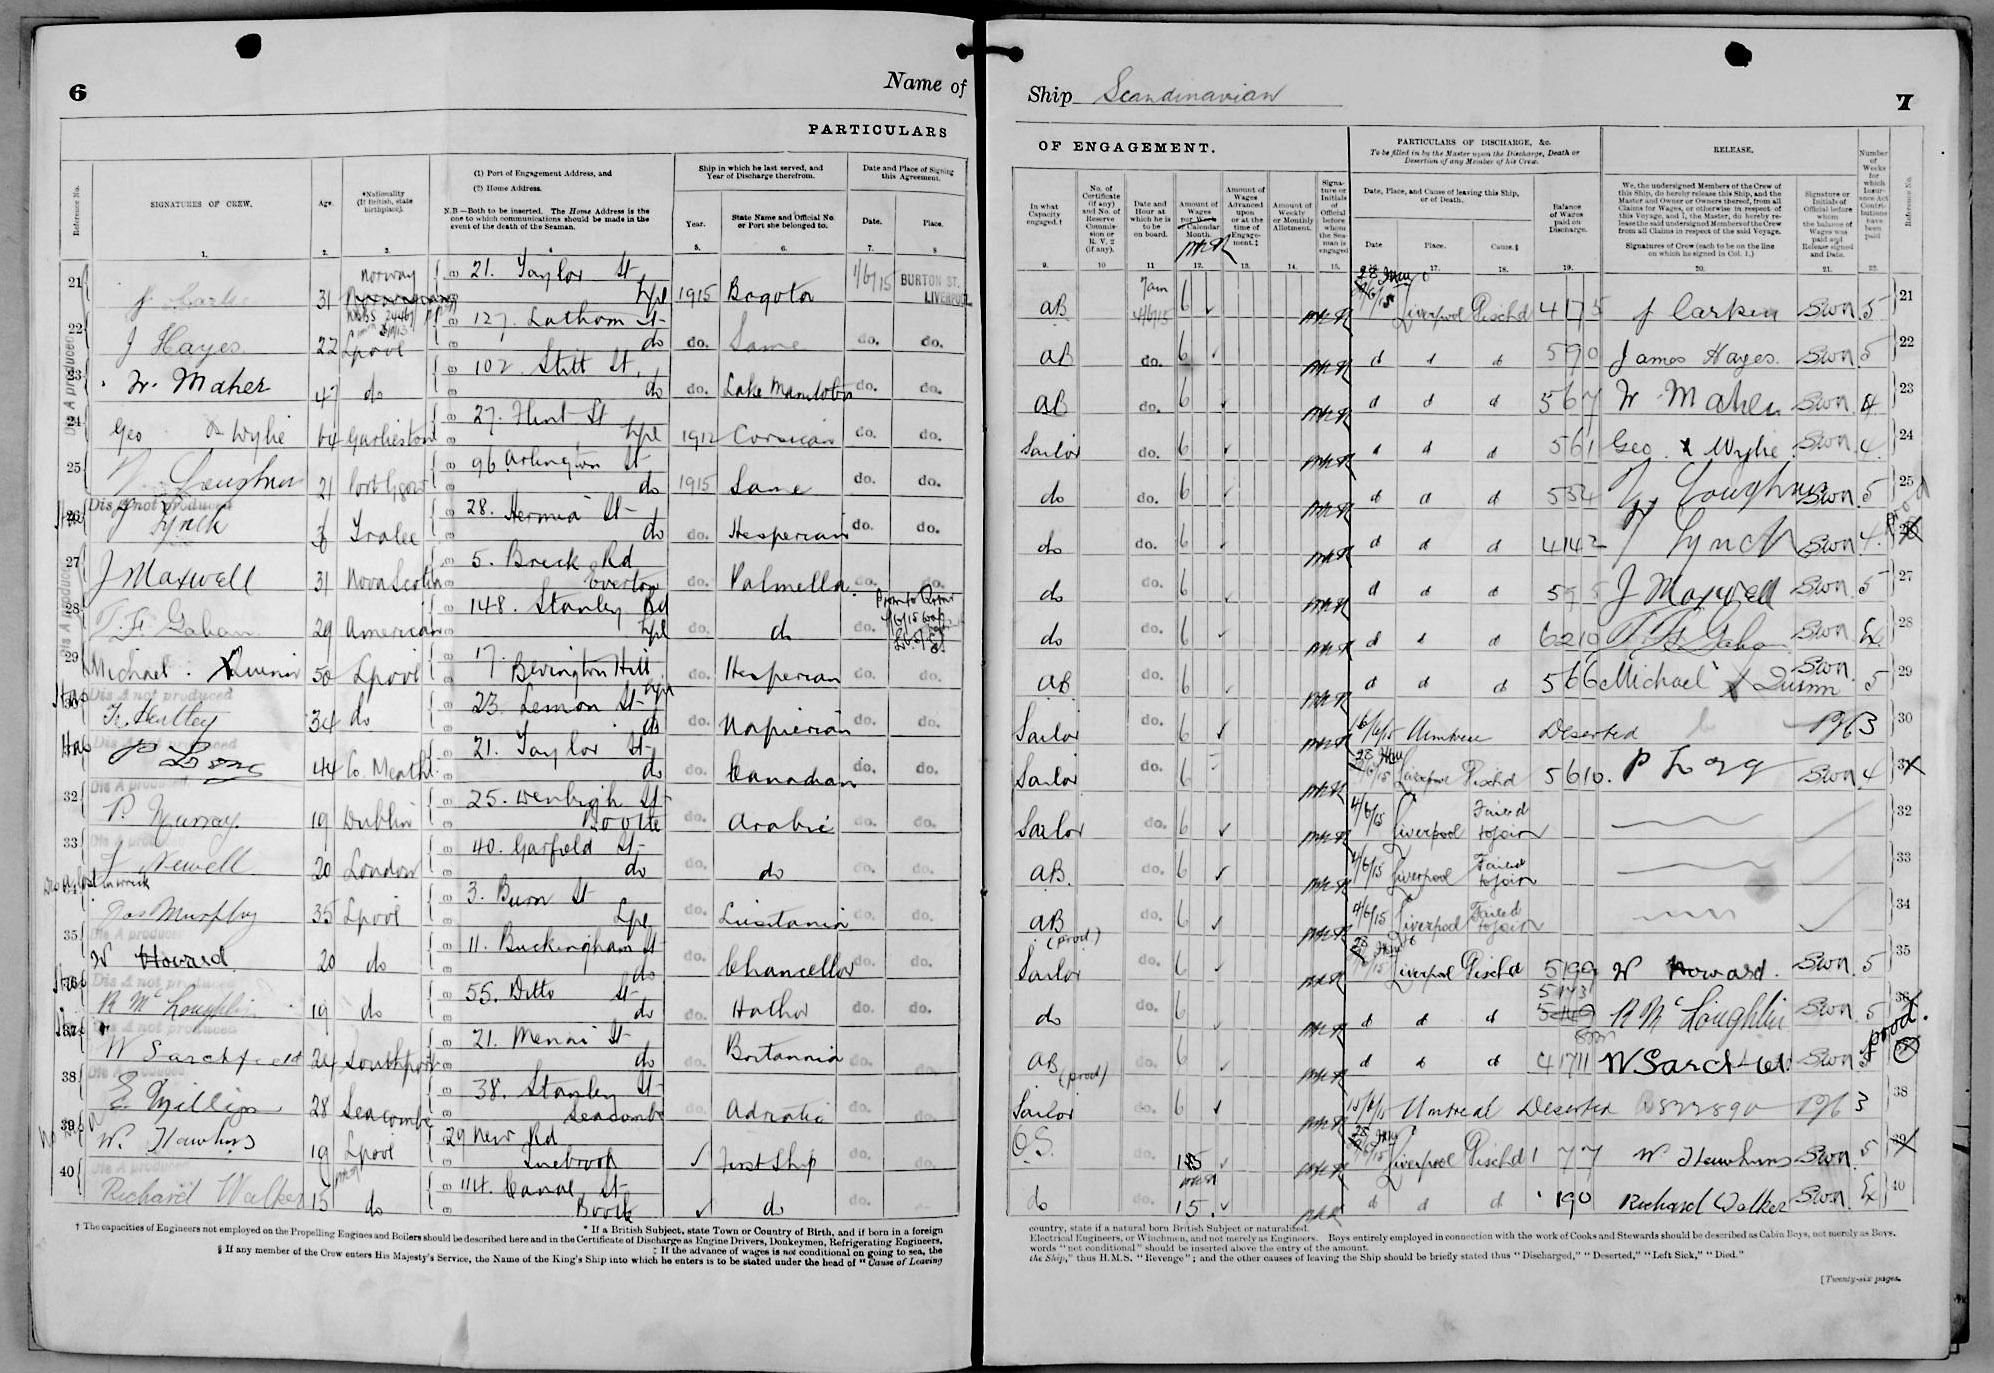 6
Name of
PARTICULARS
Reference No.
SIGNATURES OF CREW.
Age.
*Nationality (If British, state birthplace).
(1) Port of Engagement Address, and
(2) Home Address.
N.B.—Both to be inserted. The Home Address is the one to which communications should be made in the event of the death of the Seaman.
Ship in which he last served, and Year of Discharge therefrom.
Year.
State Name and Official No. or Port she belonged to.
Date and Place of Signing this Agreement.
Date.
Place.
1. 2. 3. 4 5. 6. 7. 8
21 31 Norway 21. Taylor St Lpl 1915 Bogota 1/6/15 BURTON ST. LIVERPOOL
22 J Hayes 22 Lpool 127. Lathom St do do. Same do. do.
23 W. Maher 47 do 102. Stitt St. do do. Lake Manitoba do. do.
24 Geo X Wylie 64 Garlieston 27. Flint St Lpl 1912 Corsican do. do.
25 Loughran 21 96 Arlington St do 1915 Same do. do.
Dis A not produced
26 Lynch Tralee 28. Hermia St do do. Hesperian do. do.
27 J Maxwell 31 Nova Scotia 5. Breck Rd Everton do. Palmella do. do.
28 T. F. Gahan 29 American 148. Stanley Rd Lpl do. do do.
29 Michael X Quinn 50 Lpool 17. Bevington Hill Lpl do. Hesperian do. do.
Dis A not produced
30 34 do 23. Lemon St do do. Napierian do. do.
Dis A not produced
P Long 44 Co. Meath 21. Taylor St do do. Canadian do. do.
Dis A produced
32 P. Murray 19 Dublin 25. Denbigh St Bootle do. Arabic do. do.
Dis A produced
33 Newell 20 London 40. Garfield St do do. do do. do.
Jas Murphy 35 Lpool 3. Burn St Lpl do. Lusitania do. do.
Dis A produced
35 W Howard 20 do 11. Buckingham St do do. Chancellor do. do.
Dis A not produced
R McLoughlin 19 do 55. Ditto St do do. Hathor do. do.
Dis A not produced
W Sarchfield 24 Southport 21. Menai St do do. Britannia do. do.
Dis A produced
38 E. Phillips 28 Seacombe 38. Stanley St Seacombe do. Adriatic do. do.
39 W. Hawkins 19 Lpool 29 New Rd Tuebrook ✓ First Ship do. do.
Dis A produced
40 Richard Walker 15 do 114. Canal St Bootle ✓ do do.
† The capacities of Engineers not employed on the Propelling Engines and Boilers should be described here and in the Certificate of Discharge as Engine Drivers, Donkeymen, Refrigerating Engineers,
* If a British Subject, state Town or Country of Birth, and if born in a foreign
‡ If the advance of wages is not conditional on going to sea, the
§ If any member of the Crew enters His Majesty's Service, the Name of the King's Ship into which he enters is to be stated under the head of "Cause of Leaving
Ship Scandinavian
7
OF ENGAGEMENT.
PARTICULARS OF DISCHARGE, &c.
To be filled in by the Master upon the Discharge, Death or Desertion of any Member of his Crew.
RELEASE.
In what Capacity engaged.†
No. of Certificate (if any) and No. of Reserve Commission or R. V. 2 (if any).
Date and Hour at which he is to be on board.
Amount of Wages per Week or Calendar Month.
Amount of Wages Advanced upon or at the time of Engagement.‡
Amount of Weekly or Monthly Allotment.
Signature or Initials of Official before whom the Seaman is engaged
Date, Place, and Cause of leaving this Ship, or of Death.
Date Place. Cause.§
Balance of Wages paid on Discharge.
We, the undersigned Members of the Crew of this Ship, do hereby release this Ship, and the Master and Owner or Owners thereof, from all Claims for Wages, or otherwise in respect of this Voyage, and I, the Master, do hereby release the said undersigned Members of the Crew from all Claims in respect of the said Voyage.
Signatures of Crew (each to be on the line on which he signed in Col. 1.)
Signature or Initials of Official before whom the balance of Wages was paid and Release signed and Date.
Number of Weeks for which Insurance Act Contributions have been paid
Reference No.
9. 10 11 12. 13. 14. 15. 17. 18. 19. 20. 21. 22.
AB 7am 4/6/15 6 ✓ Liverpool Disch'd J Carken 5 21
AB do. 6 ✓ d d d James Hayes 5 22
AB do. 6 ✓ d d d 567 W Maher 23
Sailor do. 6 ✓ d d d 561 Geo X Wylie 4. 24
do do. 6 ✓ d d d Loughran 5 25
do do. 6 ✓ d d d 4142 Lynch 4
do do. 6 ✓ d d d J Maxwell 5 27
do do. 6 ✓ d d d 6210 28
AB do. 6 ✓ d d d 566 Michael X Quinn 5 29
Sailor do. 6 ✓ 16/6/15 Montreal Deserted 3 30
Sailor do. 6 Liverpool Disch'd 5610. P Long 4
Sailor do. 6 ✓ 4/6/15 Liverpool Failed to join 32
AB. do. 6 ✓ 4/6/15 Liverpool Failed to join 33
AB (prod) do. 6 ✓ 4/6/15 Liverpool Failed to join 34
Sailor do. 6 ✓ Liverpool Disch'd W Howard. 5 35
do do. 6 ✓ d d d R McLoughlin 5
AB (prod) do. 6 ✓ d d d 41711 W Sarchfield prod.
Sailor do. 6 ✓ 15/6/15 Montreal Deserted 3 38
O.S. do. ✓ Liverpool Disch'd 1 77 W Hawkins 5 39
do do. 15. ✓ d d d 190 Richard Walker 40
country, state if a natural born British Subject or naturalified.
Electrical Engineers, or Winchmen, and not merely as Engineers. Boys entirely employed in connection with the work of Cooks and Stewards should be described as Cabin Boys, not merely as Boys.
words "not conditional" should be inserted above the entry of the amount.
the Ship," thus H.M.S. "Revenge"; and the other causes of leaving the Ship should be briefly stated thus "Discharged," "Deserted," "Left Sick," "Died."
[Twenty-six pages.